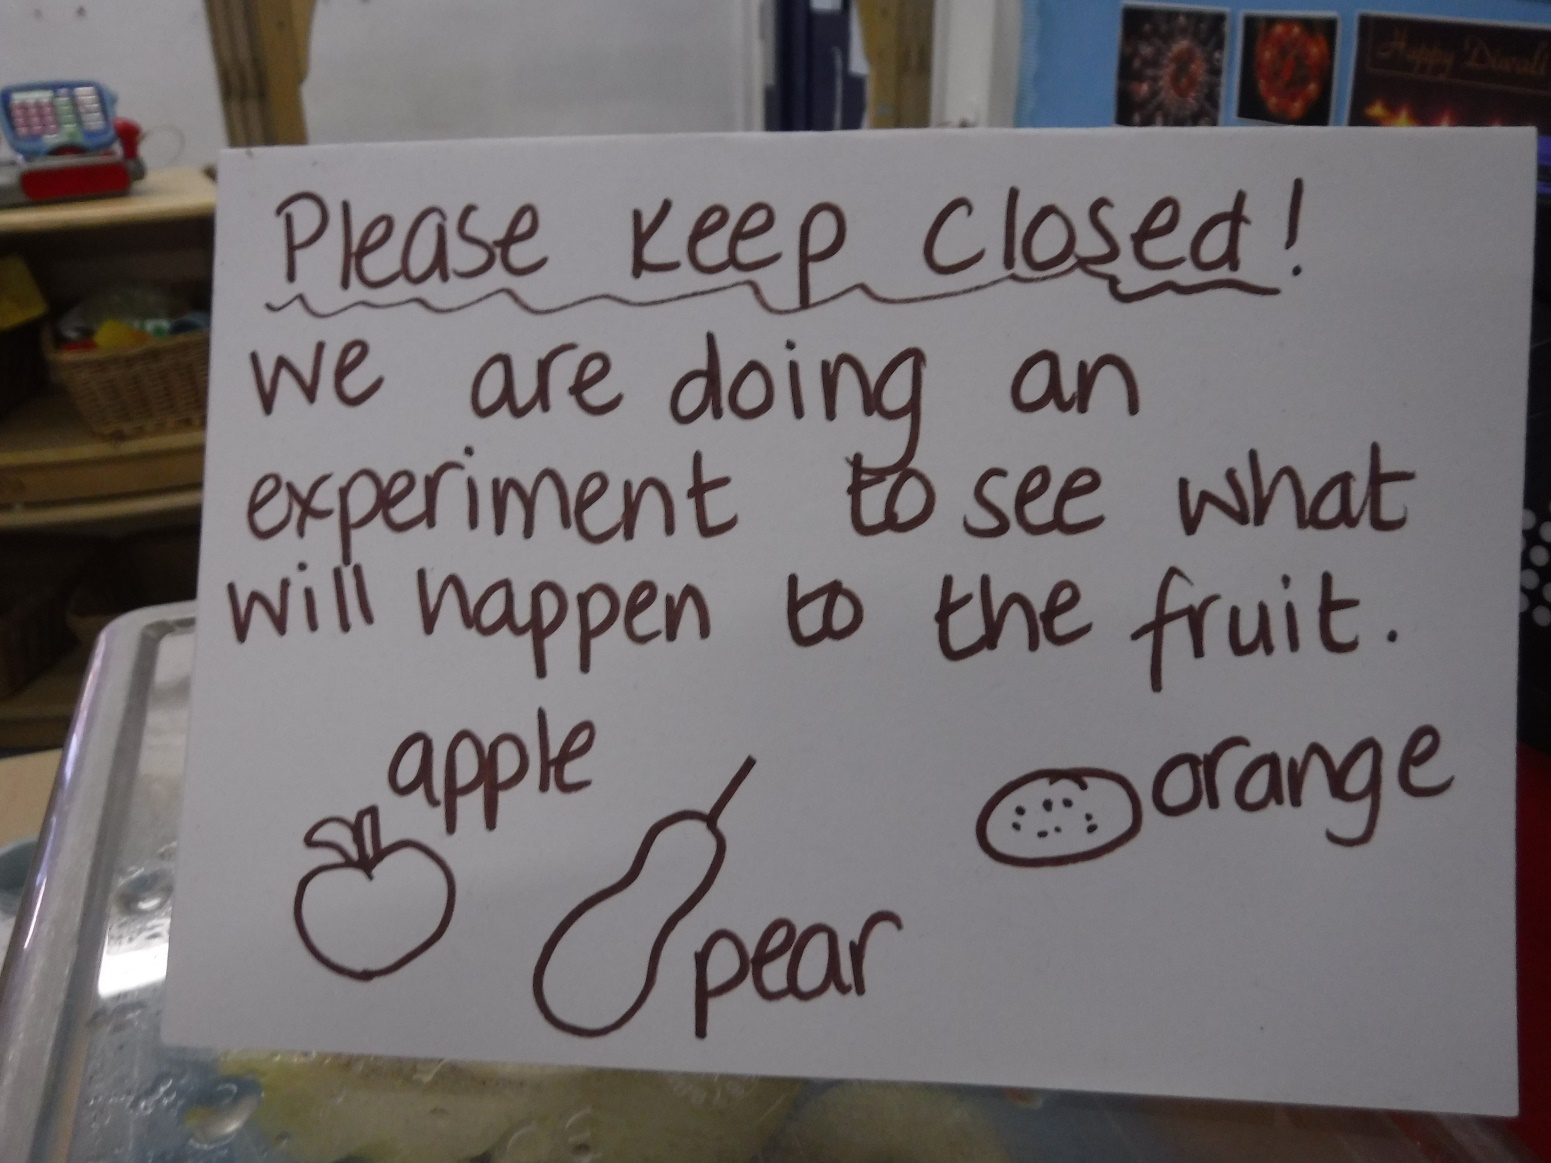 Happy Diwali
Please keep closed!
we are doing an
experiment to see what
will happen to the fruit.
apple
orange
pear